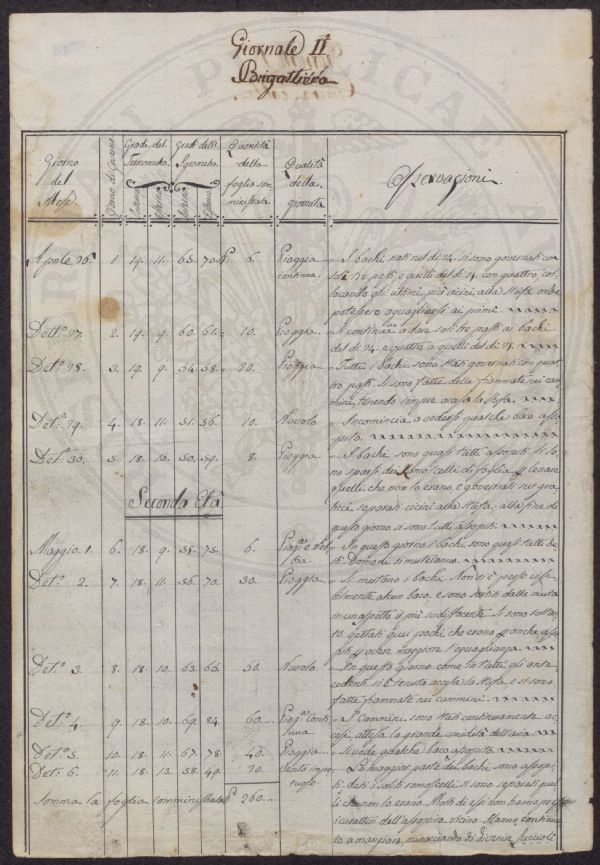 Giornale II
Brigattiera
Giorno del Mese
Gradi del Termometro
Gradi dell' Igrometro
Interno Esterno Interno Esterno
Quantità della foglia somministrata
Qualità della giornata
Osservazioni
Aprile 26. 1 19. 11. 65. 70. 6. Pioggia continua. I bachi nati nel dì 24. si sono governati con
soli tre pasti, e quelli del dì 25. con quattro, col
locando gli ultimi più vicini alla stufa onde
potessero aguagliarsi ai primi.
Dett.o 27. 2. 19. 9. 60. 61. 10. Pioggia Si continuò a dare soli tre pasti ai bachi
del dì 24. e quattro a quelli del dì 25.
Det.o 28. 3. 19. 9. 54. 58. 20. Pioggia Tutti i bachi sono stati governati con quat
tro pasti. Si sono fatte delle fiammate nei ca
mini, tenendo sempre accesa la stufa.
Det.o 29. 4. 18. 11. 51. 56. 10. Nuvolo Incomincia a vedersi qualche baco asso
pito.
Det.o 30. 5. 18. 10. 50. 59. 8. Pioggia I bachi sono quasi tutti assopiti. Si so
no sparsi dei ramoscelli di foglia per levare
quelli che non lo erano, e governati sui gra
ticci separati vicini alla stufa, alla fine di
questo giorno si sono tutti assopiti.
Seconda Età
Maggio 1. 6. 18. 9. 55. 75. 6. In questo giorno i bachi sono quasi tutti de
sti. Domani si muteranno.
Det.o 2. 7. 18. 11. 56. 70. 30. Pioggia Si mutano i bachi. Non si è perso visi
bilmente alcun baco, e sono sortiti dalla muta
in un aspetto il più sodisfacente. Si sono soltan
to gettati quei pochi che erano anche asso
piti per aver maggiore eguaglianza.
Det.o 3. 8. 18. 10. 63. 65. 50. Nuvolo In questo giorno come in tutti gli ante
cedenti si è tenuta accesa la stufa e si sono
fatte fiammate nei cammini.
Det.o 4. 9. 18. 10. 69. 84. 60. Piog.a Conti
nua I Cammini sono stati continuamente ac
cesi, attesa la grande umidità dell'aria
Det.o 5. 10. 18. 11. 67. 78. 40. Pioggia Si vede qualche baco assopito.
Det.o 6. 11. 18. 13. 58. 49. 20. Vento impe
tuoso La maggior parte dei bachi sono assopi
ti. dati i soliti ramoscelli si sono separati quel
li che non lo erano. Molti di essi non hanno
i caratteri dell'assopirsi vicino. Hanno continua
to a mangiare, minacciando di divenir lucciolì
Somma la foglia somministrata 260